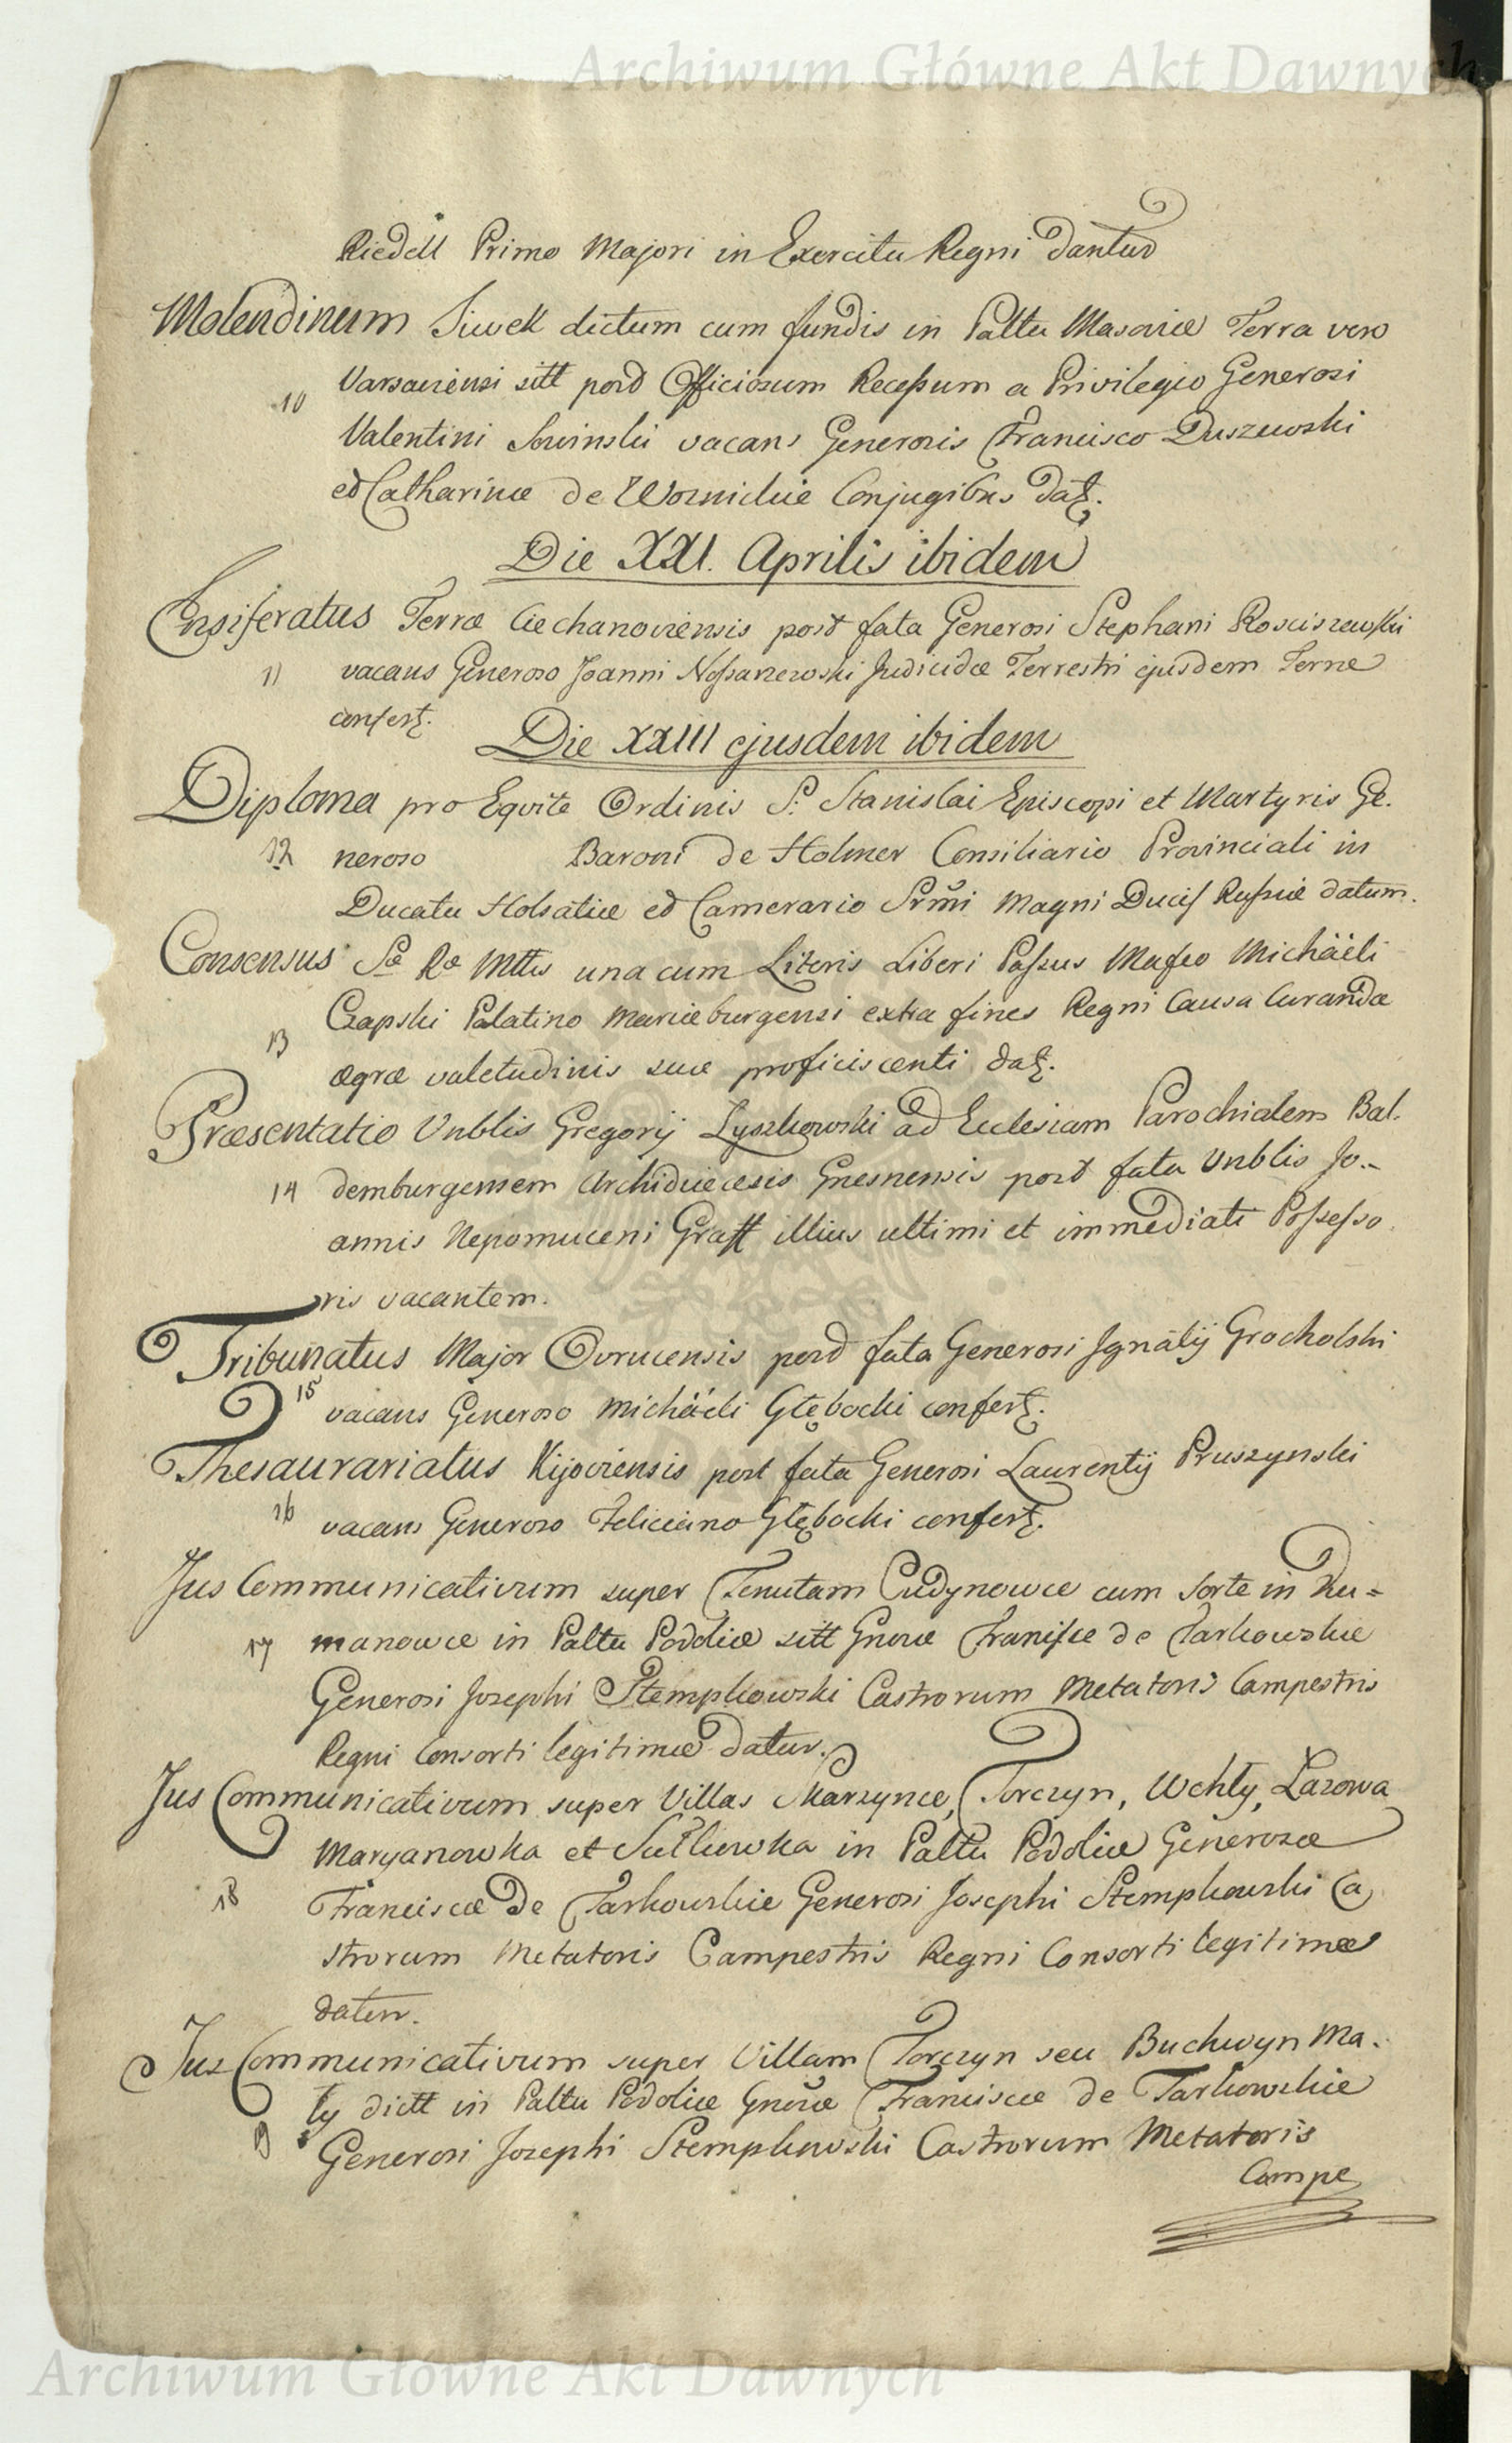 Archiwum Główne Akt Dawnych
Riedell Primo Majori in Exercitu Regni dantur
Molendinum Siwek dictum cum fundis in Palttu Masoviæ Terra vero
10 Varsaviensi sitt post Officiosum Recessum a Privilegio Generosi
Valentini Sowinski vacans Generosis Francisco Duszewski
et Catharinæ de Woznickie Conjugibus dat.
Die XXI. Aprilis ibidem
Ensiferatus Terræ Ciechanoviensis post fata Generosi Stephani Rosciszewski
11 vacans Generoso Joanni Nossarzewski Judicidæ Terrestri ejusdem Terræ
confert.
Die XXIII ejusdem ibidem
Diploma pro Equite Ordinis S. Stanislai Episcopi et Martyris Ge.
12 neroso Baroni de Holmer Consiliario Provinciali in
Ducatu Holsatiæ et Camerario Srmi Magni Ducis Russiæ datum.
Consensus Sæ Ræ Mttis una cum Literis Liberi Passus Mafco Michäeli
13 Czapski Palatino Mariæburgensi extra fines Regni Causa Curandæ
ægræ valetudinis suæ proficiscenti dat.
Præsentatio Vnblis Gregorij Lyszkowski ad Ecclesiam Parochialem Bal.
14 demburgensem Archidiæcesis Gnesnensis post fata Vnblis Jo..
annis Nepomuceni Graff illius ultimi et immediati Possesso.
ris vacantem.
Tribunatus Major Ovrucensis post fata Generosi Ignatij Grocholski
15 vacans Generoso Michäeli Głębocki confert.
Thesaurariatus Kijoviensis post fata Generosi Laurentij Pruszynski
16 vacans Generoso Feliciano Głębocki confert.
Jus Communicativum super Tenutam Cudynowce cum sorte in Ku=
17 manowce in Palttu Podoliæ sitt Gnosæ Franiscæ de Tarkowskie
Generosi Josephi Stempkowski Castrorum Metatoris Campestris
Regni Consorti legitimæ datur.
Jus Communicativum super Villas Marzynce, Torczyn, Uchły, Lazowa
Maryanowka et Sutkowka in Palttu Podoliæ Generosæ
18 Franciscæ De Tarkowskie Generosi Josephi Stempkowski Ca
strorum Metatoris Campestris Regni Consorti legitimæ
datur.
Jus Communicativum super Villam Torczyn seu Buchwyn Ma.
ły dictt in Palttu Podoliæ Gnosæ Franciscæ de Tarkowskie
19 Generosi Josephi Stempkowski Castrorum Metatoris
Campe
Archiwum Główne Akt Dawnych